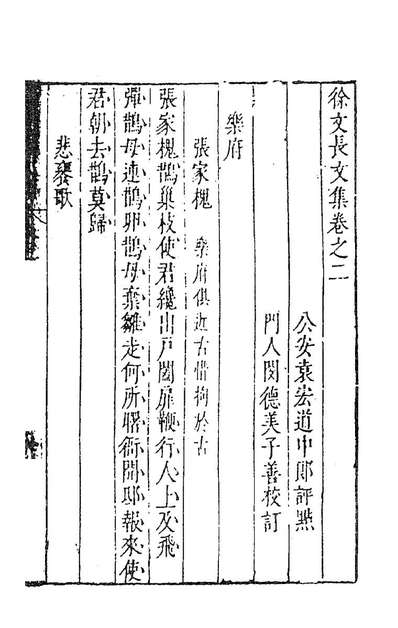 徐文長文集卷之二
公安袁宏道中郎評點
門人閔德美子善校訂
樂府
張家槐 樂府俱近古惜拘於古
張家槐鵲巢枝使君纔出戶閣扉鞭行人上及飛
彈鵲母連鵲卵鵲母棄雛走何所曙衙開邸報來使
君朝去鵲莫歸
悲饗歌